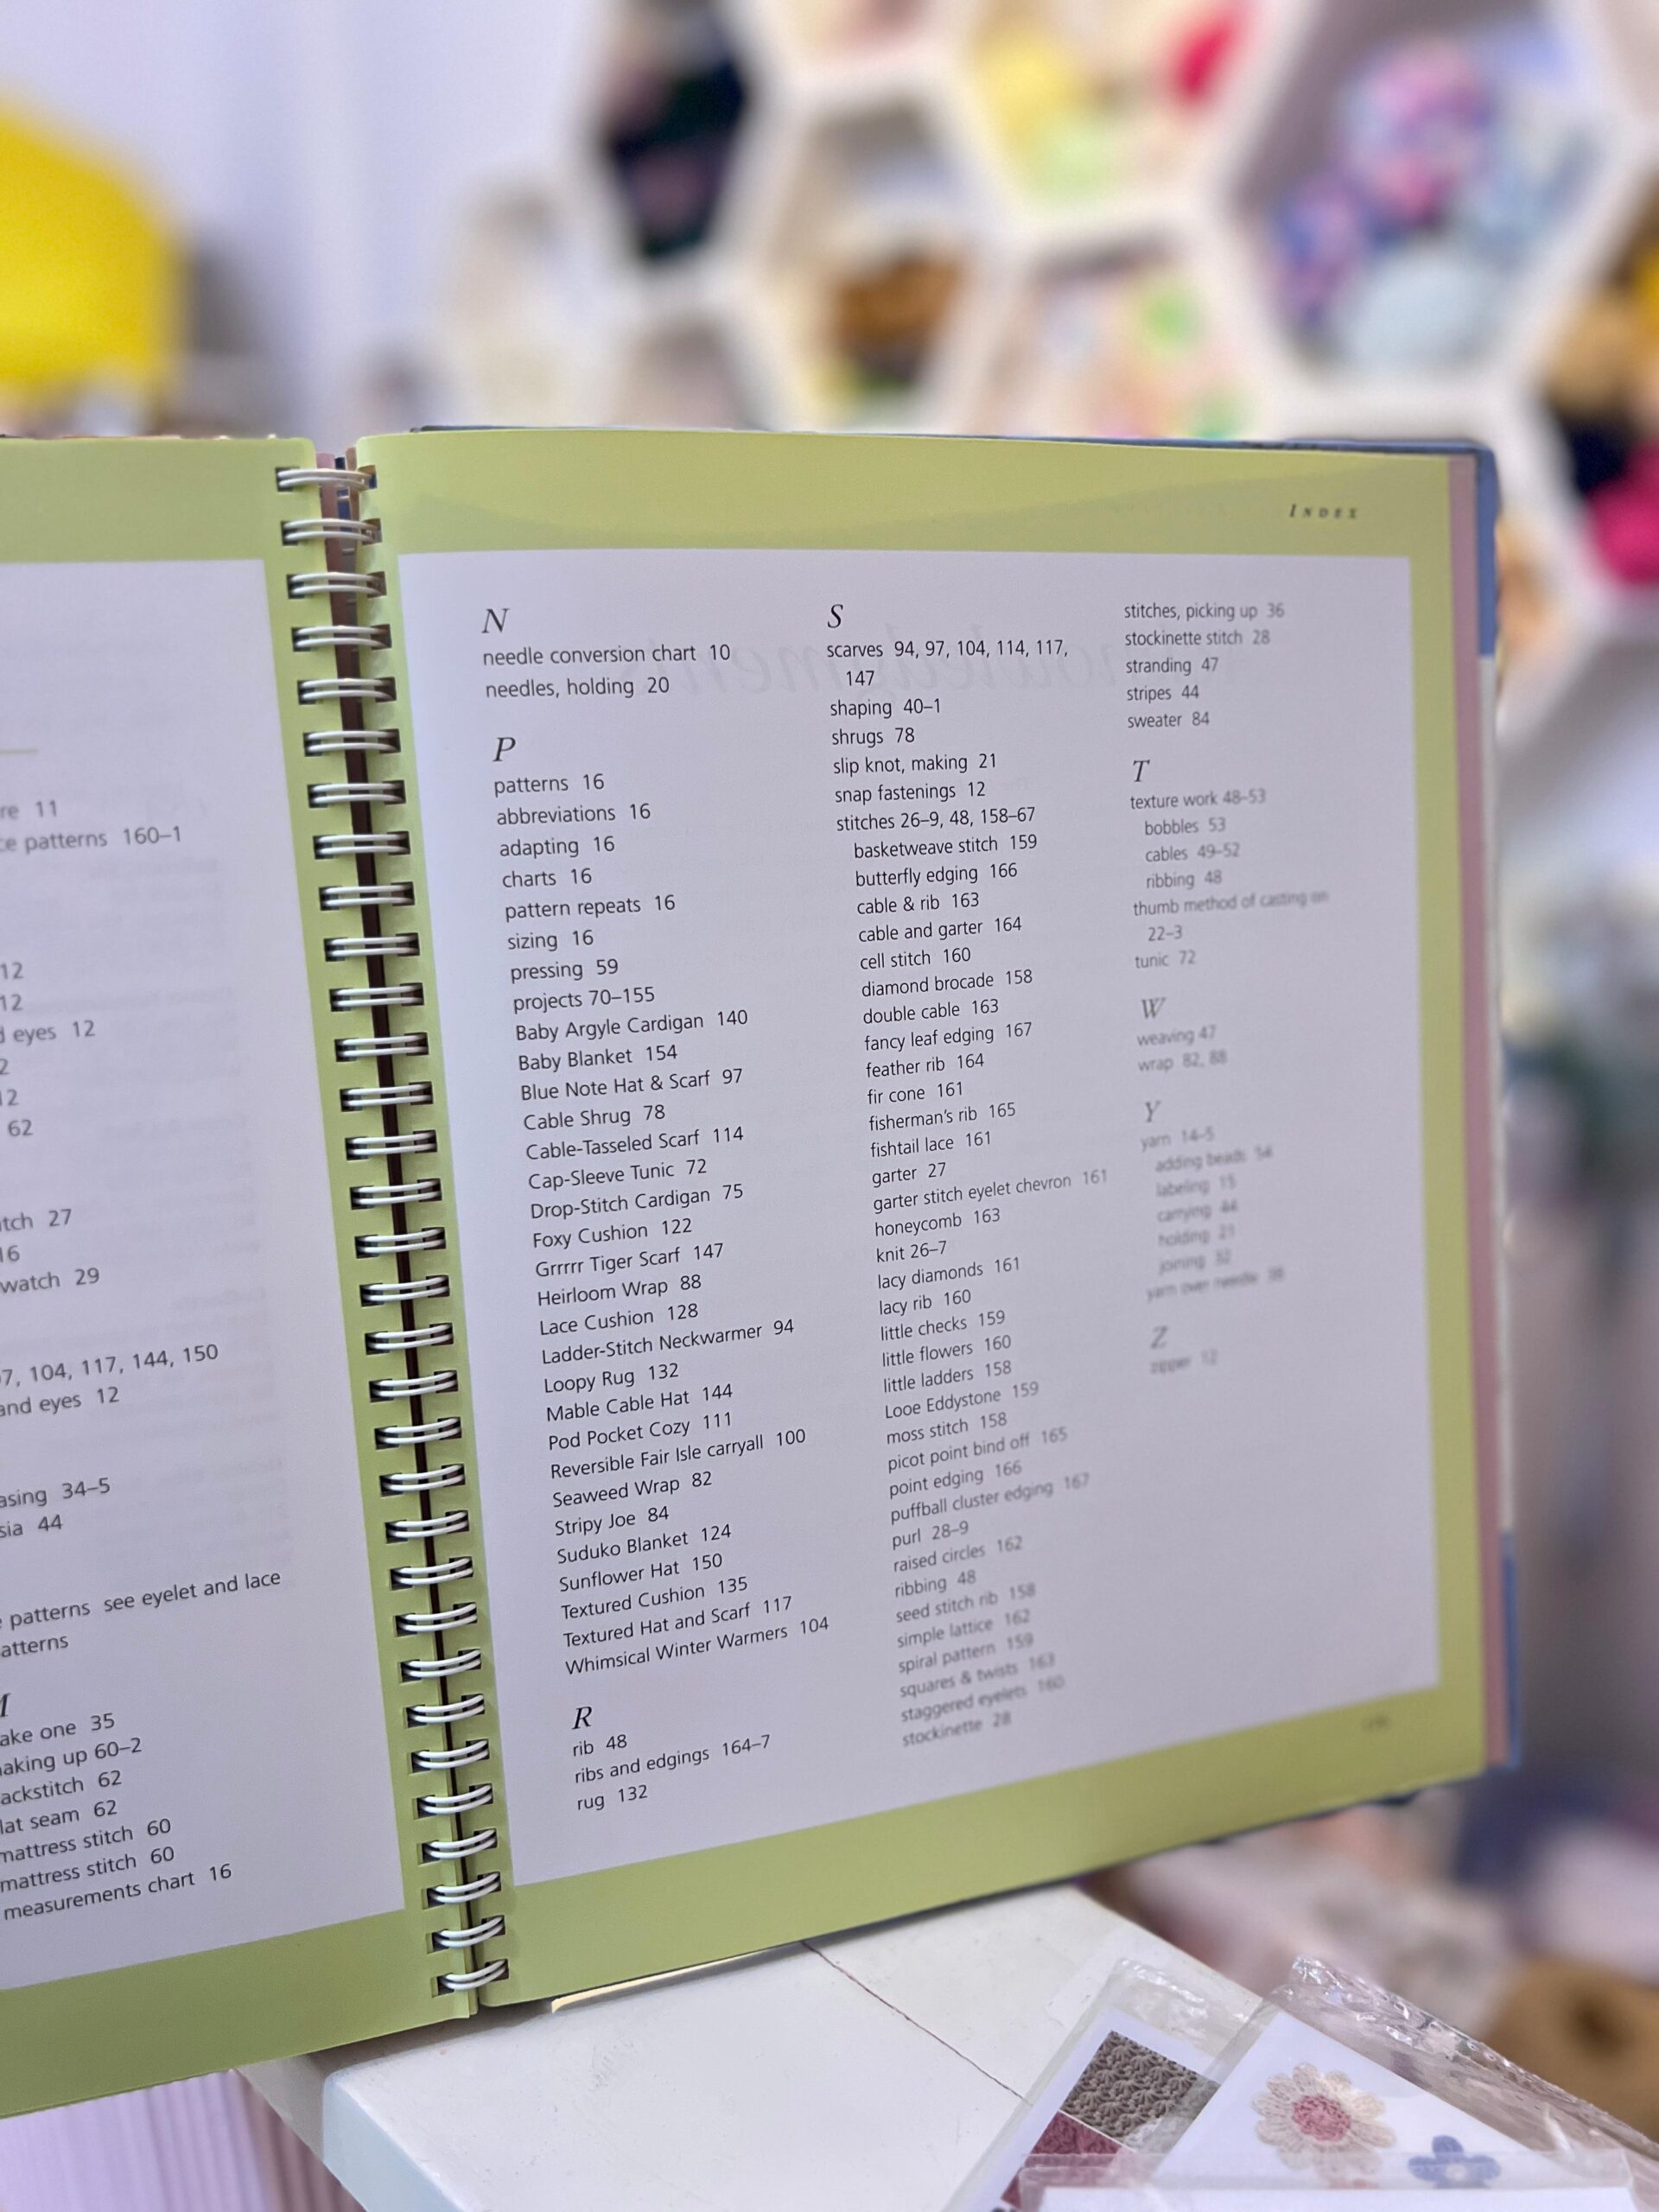 re 11
ce patterns 160–1
12
12
d eyes 12
2
12
62
itch 27
16
watch 29
7, 104, 117, 144, 150
and eyes 12
asing 34–5
sia 44
patterns see eyelet and lace
atterns
ake one 35
aking up 60–2
ackstitch 62
lat seam 62
mattress stitch 60
mattress stitch 60
measurements chart 16
INDEX
N
needle conversion chart 10
needles, holding 20
P
patterns 16
abbreviations 16
adapting 16
charts 16
pattern repeats 16
sizing 16
pressing 59
projects 70–155
Baby Argyle Cardigan 140
Baby Blanket 154
Blue Note Hat & Scarf 97
Cable Shrug 78
Cable-Tasseled Scarf 114
Cap-Sleeve Tunic 72
Drop-Stitch Cardigan 75
Foxy Cushion 122
Grrrrr Tiger Scarf 147
Heirloom Wrap 88
Lace Cushion 128
Ladder-Stitch Neckwarmer 94
Loopy Rug 132
Mable Cable Hat 144
Pod Pocket Cozy 111
Reversible Fair Isle carryall 100
Seaweed Wrap 82
Stripy Joe 84
Suduko Blanket 124
Sunflower Hat 150
Textured Cushion 135
Textured Hat and Scarf 117
Whimsical Winter Warmers 104
R
rib 48
ribs and edgings 164–7
rug 132
S
scarves 94, 97, 104, 114, 117,
147
shaping 40–1
shrugs 78
slip knot, making 21
snap fastenings 12
stitches 26–9, 48, 158–67
basketweave stitch 159
butterfly edging 166
cable & rib 163
cable and garter 164
cell stitch 160
diamond brocade 158
double cable 163
fancy leaf edging 167
feather rib 164
fir cone 161
fisherman's rib 165
fishtail lace 161
garter 27
garter stitch eyelet chevron 161
honeycomb 163
knit 26–7
lacy diamonds 161
lacy rib 160
little checks 159
little flowers 160
little ladders 158
Looe Eddystone 159
moss stitch 158
picot point bind off 165
point edging 166
puffball cluster edging 167
purl 28–9
raised circles 162
ribbing 48
seed stitch rib 158
simple lattice 162
spiral pattern 159
squares & twists 163
staggered eyelets 160
stockinette 28
stitches, picking up 36
stockinette stitch 28
stranding 47
stripes 44
sweater 84
T
texture work 48–53
bobbles 53
cables 49–52
ribbing 48
thumb method of casting on
22–3
tunic 72
W
weaving 47
wrap 82, 88
Y
yarn 14–5
adding beads 54
labeling 15
carrying 44
holding 21
joining 32
yarn over needle 38
Z
zipper 12